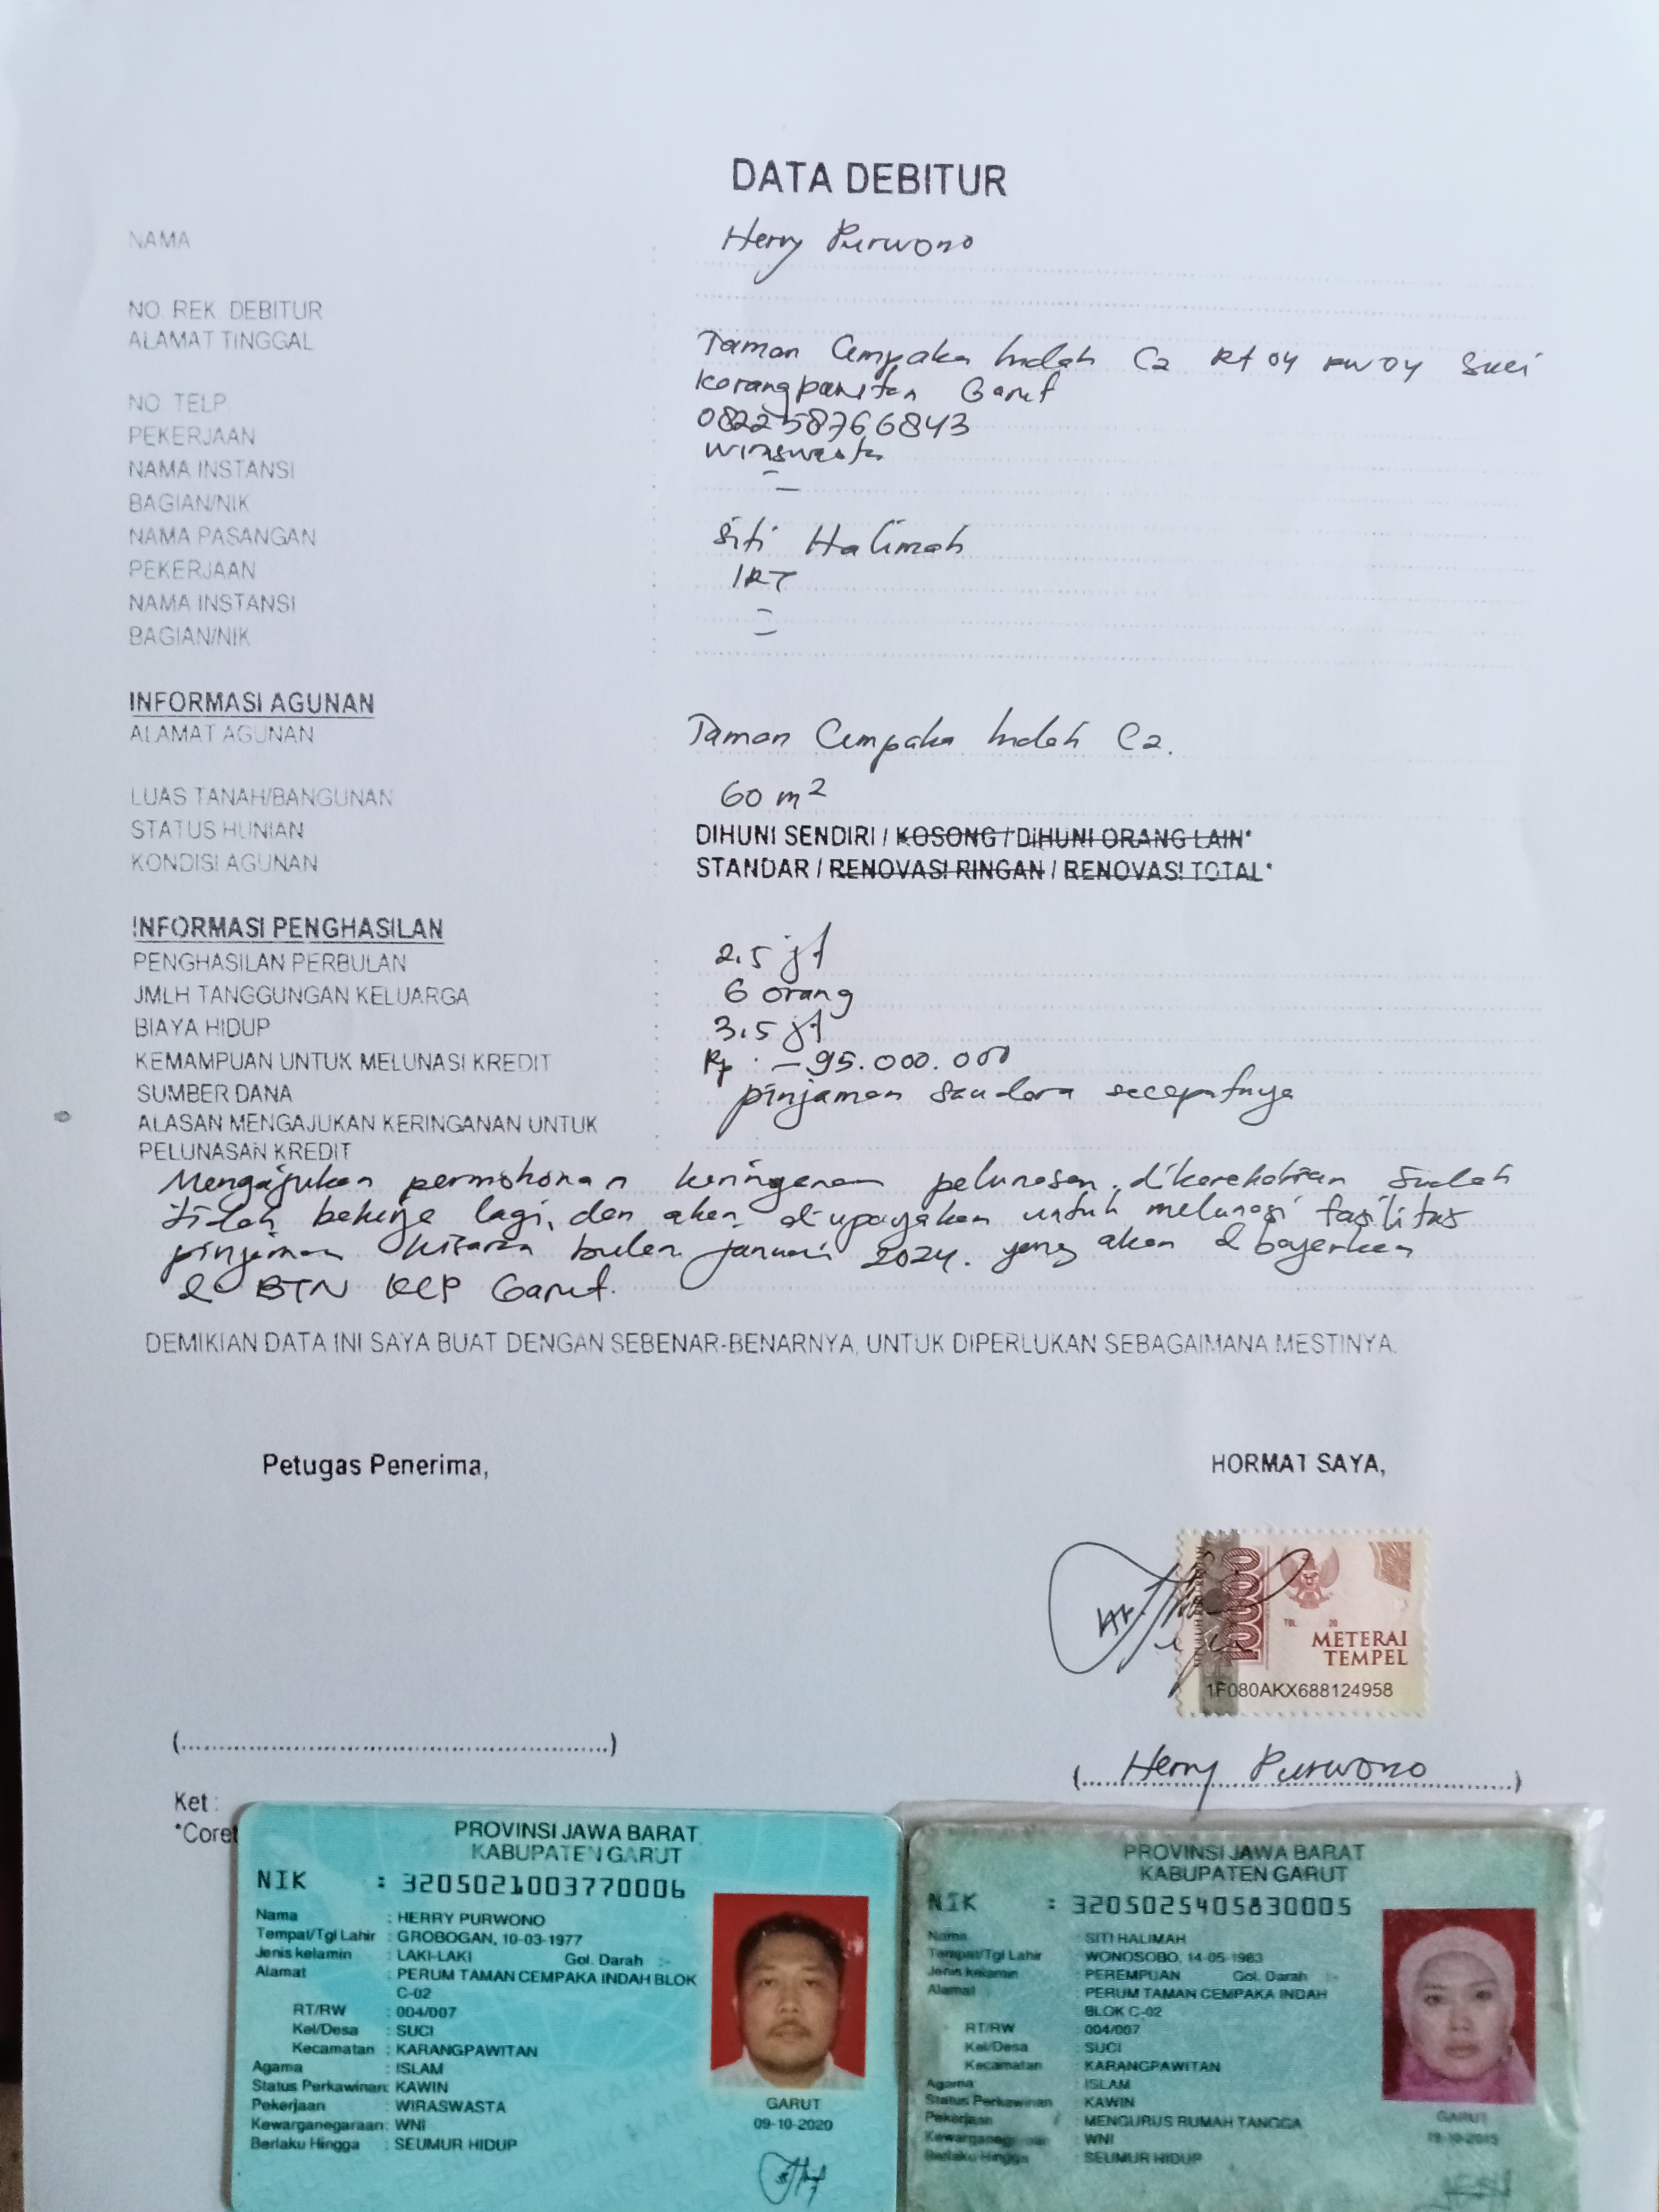 DATA DEBITUR
NAMA : Herry Purwono
NO. REK. DEBITUR
ALAMAT TINGGAL : Taman Cempaka Indah C2 Rt 04 RW 04 Suci
Karangpawitan Garut
NO. TELP. : 082258766843
PEKERJAAN : wiraswasta
NAMA INSTANSI : -
BAGIAN/NIK : -
NAMA PASANGAN : Siti Halimah
PEKERJAAN : IRT
NAMA INSTANSI : -
BAGIAN/NIK : -
INFORMASI AGUNAN
ALAMAT AGUNAN : Taman Cempaka Indah C2.
LUAS TANAH/BANGUNAN : 60 m2
STATUS HUNIAN : DIHUNI SENDIRI / KOSONG / DIHUNI ORANG LAIN*
KONDISI AGUNAN : STANDAR / RENOVASI RINGAN / RENOVASI TOTAL*
INFORMASI PENGHASILAN
PENGHASILAN PERBULAN : 2,5 jt
JMLH TANGGUNGAN KELUARGA : 6 orang
BIAYA HIDUP : 3,5 jt
KEMAMPUAN UNTUK MELUNASI KREDIT : Rp. - 95.000.000
SUMBER DANA : pinjaman saudara secepatnya
ALASAN MENGAJUKAN KERINGANAN UNTUK
PELUNASAN KREDIT :
Mengajukan permohonan keringanan pelunasan, sudah
tidak bekerja lagi, dan akan diupayakan untuk melunasi fasilitas
pinjaman kisaran bulan januari 2024. yang akan dibayarkan
di BTN KCP Garut.
DEMIKIAN DATA INI SAYA BUAT DENGAN SEBENAR-BENARNYA, UNTUK DIPERLUKAN SEBAGAIMANA MESTINYA.
Petugas Penerima, HORMAT SAYA,
10000
TGL. 20
METERAI
TEMPEL
1F080AKX688124958
(..............................) (Herry Purwono)
Ket :
*Coret
PROVINSI JAWA BARAT
KABUPATEN GARUT
NIK : 3205021003770006
Nama : HERRY PURWONO
Tempat/Tgl Lahir : GROBOGAN, 10-03-1977
Jenis kelamin : LAKI-LAKI Gol. Darah :-
Alamat : PERUM TAMAN CEMPAKA INDAH BLOK
C-02
RT/RW : 004/007
Kel/Desa : SUCI
Kecamatan : KARANGPAWITAN
Agama : ISLAM
Status Perkawinan: KAWIN
Pekerjaan : WIRASWASTA
Kewarganegaraan: WNI
Berlaku Hingga : SEUMUR HIDUP
GARUT
09-10-2020
PROVINSI JAWA BARAT
KABUPATEN GARUT
NIK : 3205025405830005
Nama : SITI HALIMAH
Tempat/Tgl Lahir : WONOSOBO, 14-05-1983
Jenis kelamin : PEREMPUAN Gol. Darah :-
Alamat : PERUM TAMAN CEMPAKA INDAH
BLOK C-02
RT/RW : 004/007
Kel/Desa : SUCI
Kecamatan : KARANGPAWITAN
Agama : ISLAM
Status Perkawinan : KAWIN
Pekerjaan : MENGURUS RUMAH TANGGA
Kewarganegaraan : WNI
Berlaku Hingga : SEUMUR HIDUP
GARUT
19-10-2015